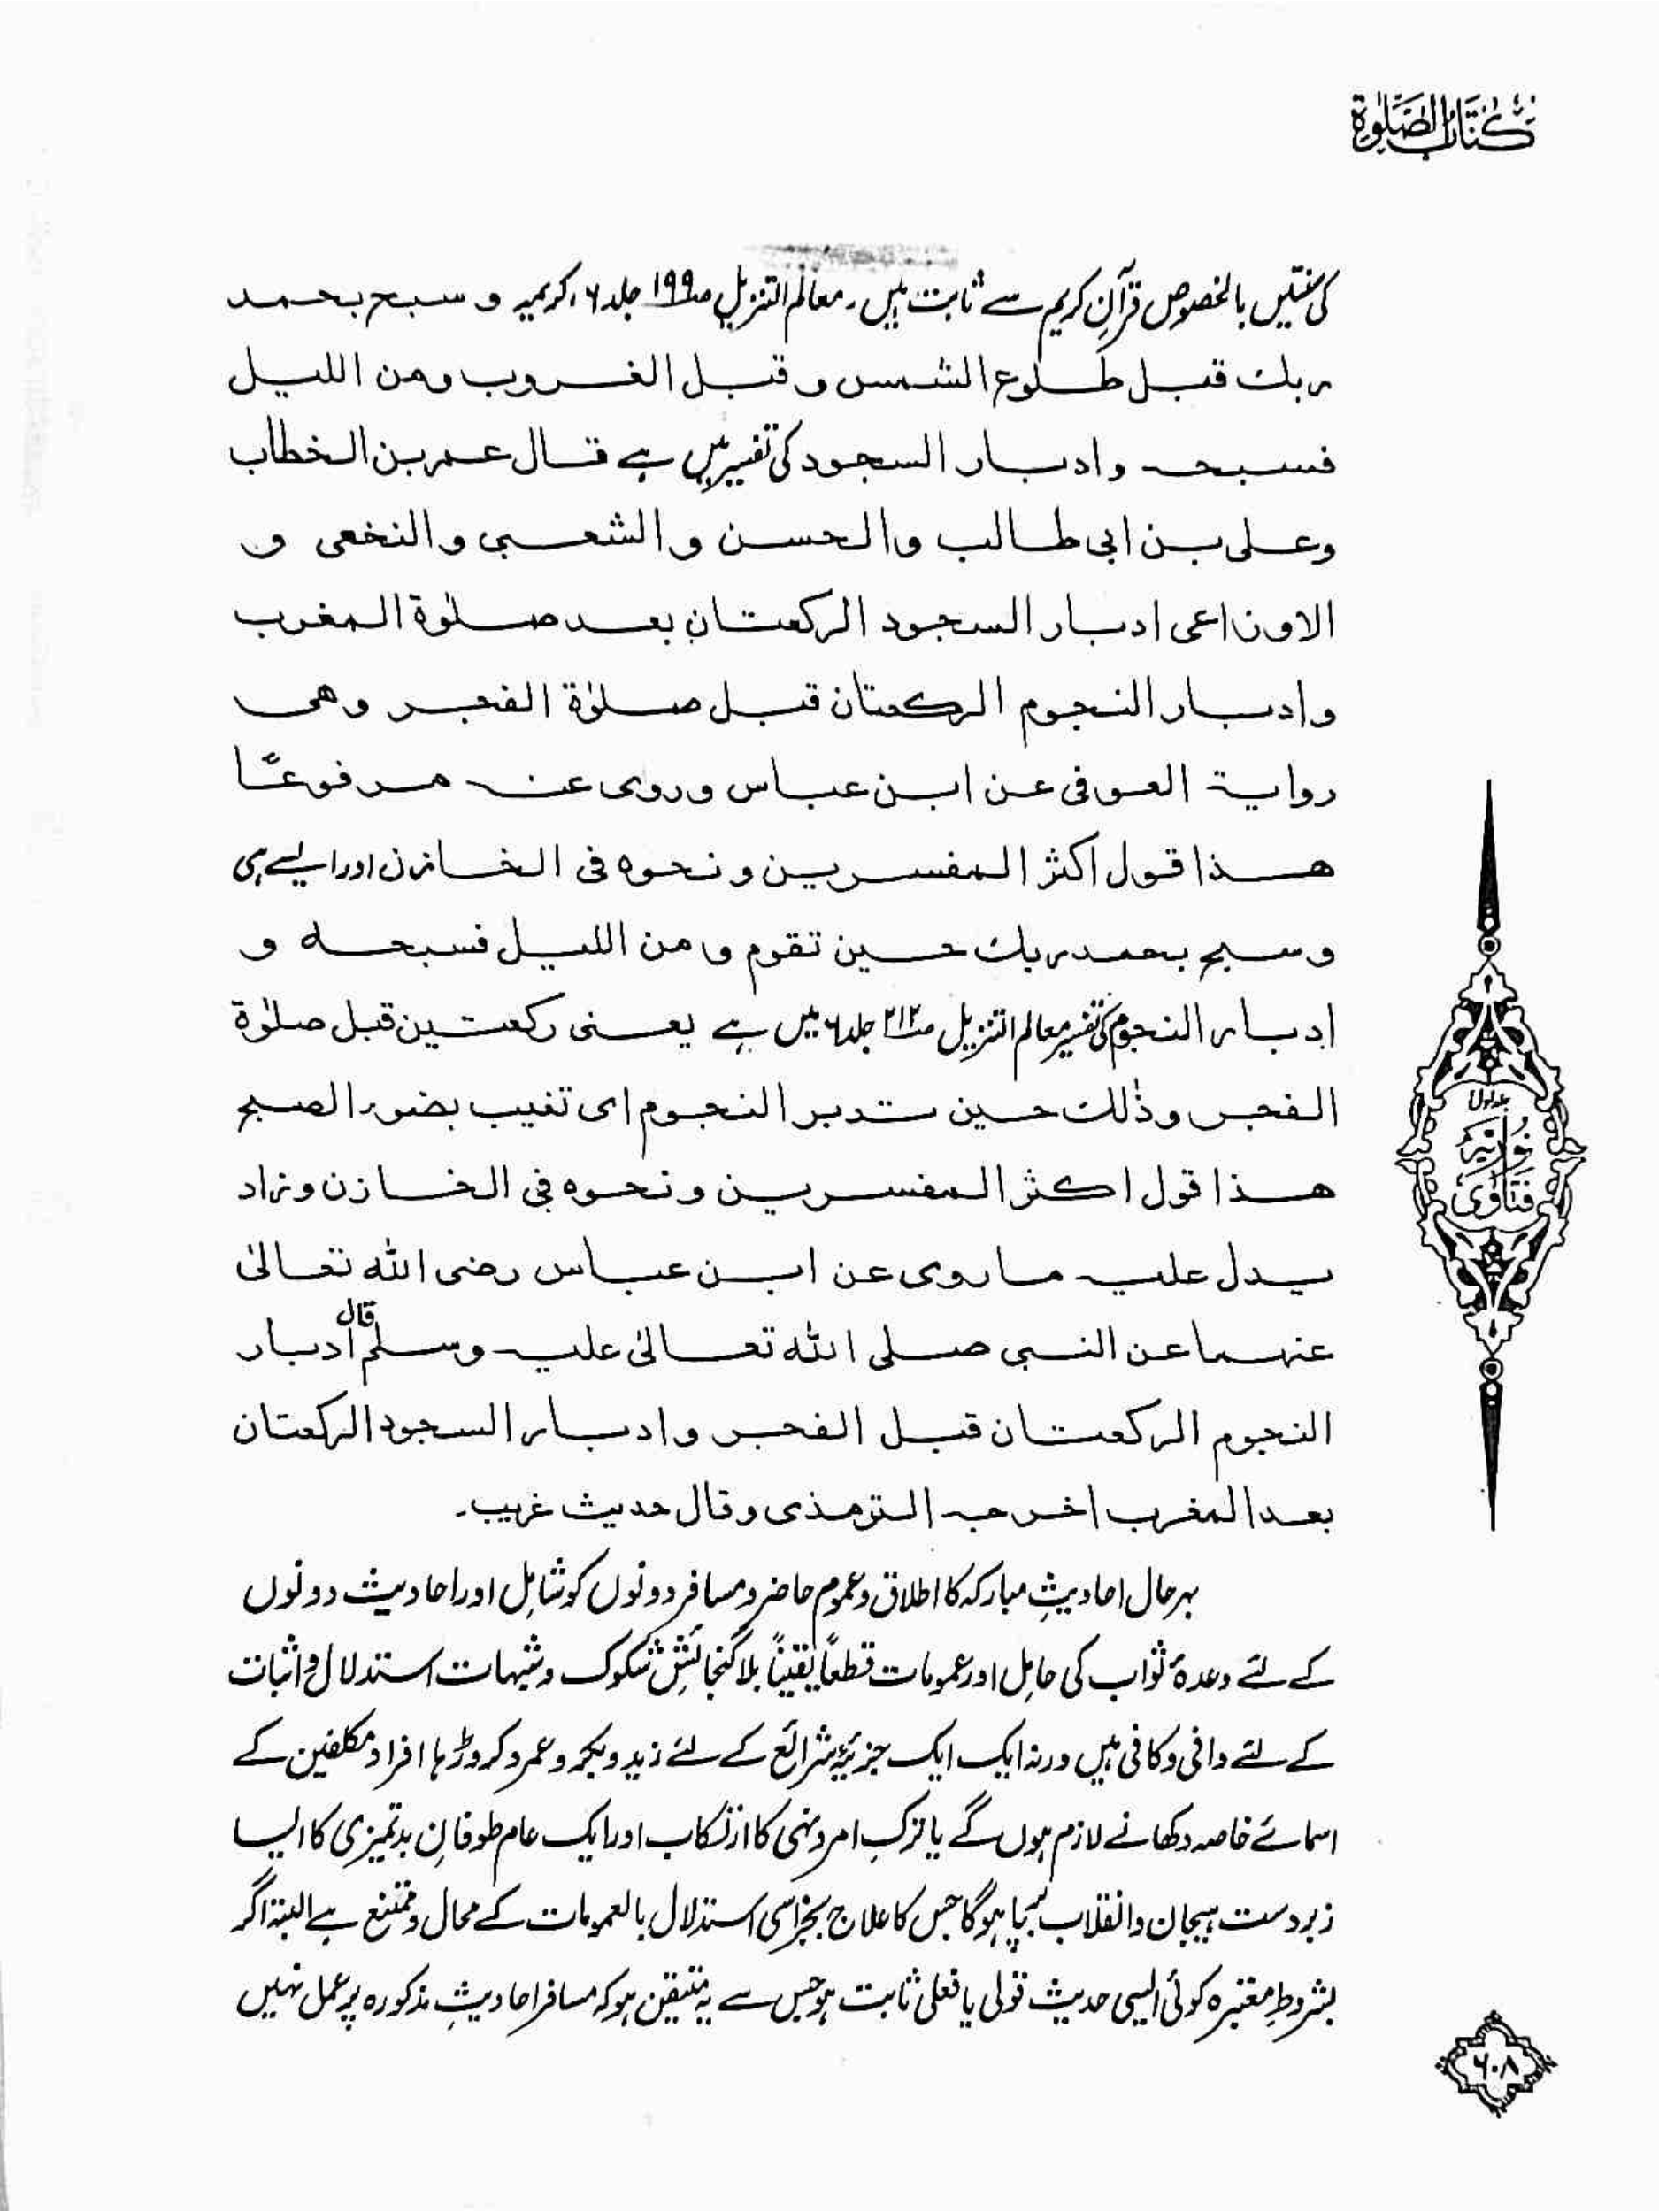 كتاب الصلوة
کی سنتیں بالخصوص قرآنِ کریم سے ثابت ہیں۔ معالم التنزیل ص۱۹۹ جلد ۶، کریمہ و سبح بحمد
ربك قبل طلوع الشمس و قبل الغروب ومن الليل
فسبحه وادبار السجود کی تفسیر میں ہے قال عمر بن الخطاب
وعلى بن ابى طالب والحسن والشعبى والنخعى و
الاوزاعى ادبار السجود الركعتان بعد صلوٰة المغرب
وادبار النجوم الركعتان قبل صلوٰة الفجر وهى
رواية العوفى عن ابن عباس وروى عنه مرفوعًا
هذا قول اكثر المفسرين ونحوه فى الخازن اور ایسے ہی
وسبح بحمد ربك حين تقوم ومن الليل فسبحه و
ادبار النجوم کی تفسیر معالم التنزیل ص۲۱۲ جلد ۶ میں ہے يعنى ركعتين قبل صلوٰة
الفجر وذٰلك حين تدبر النجوم اى تغيب بضوء الصبح
هذا قول اكثر المفسرين ونحوه فى الخازن وزاد
يدل عليه ما روى عن ابن عباس رضى الله تعالىٰ
عنهما عن النبى صلى الله تعالىٰ عليه وسلم قال ادبار
النجوم الركعتان قبل الفجر وادبار السجود الركعتان
بعد المغرب اخرجه الترمذى وقال حديث غريب۔
بہرحال احادیثِ مبارکہ کا اطلاق و عموم حاضر و مسافر دونوں کو شامل اور احادیث دونوں
کے لئے وعدۂ ثواب کی حامل اور عمومات قطعاً یقیناً بلا گنجائشِ شکوک و شبہات استدلال و اثبات
کے لئے وافی و کافی ہیں ورنہ ایک ایک جزئیۂ شرائع کے لئے زید و بکر و عمرو کروڑ ہا افراد مکلفین کے
اسمائے خاصہ دکھانے لازم ہوں گے یا ترکِ امر و نہی کا ارتکاب اور ایک عام طوفانِ بدتمیزی کا ایسا
زبردست ہیجان و انقلاب بپا ہوگا جس کا علاج بجز اسی استدلال بالعمومات کے محال و ممتنع ہے البتہ اگر
بشروطِ معتبرہ کوئی ایسی حدیث قولی یا فعلی ثابت ہو جس سے یہ متیقن ہو کہ مسافر احادیثِ مذکورہ پر عمل نہیں
جلد اول
نوریہ
فتاوی
۶۰۸